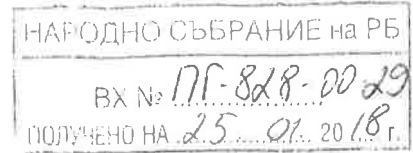 НАРОДНО СЪБРАНИЕ на РБ
ВХ № ПГ-828-00 29
ПОЛУЧЕНО НА 25. 01. 2018 г.